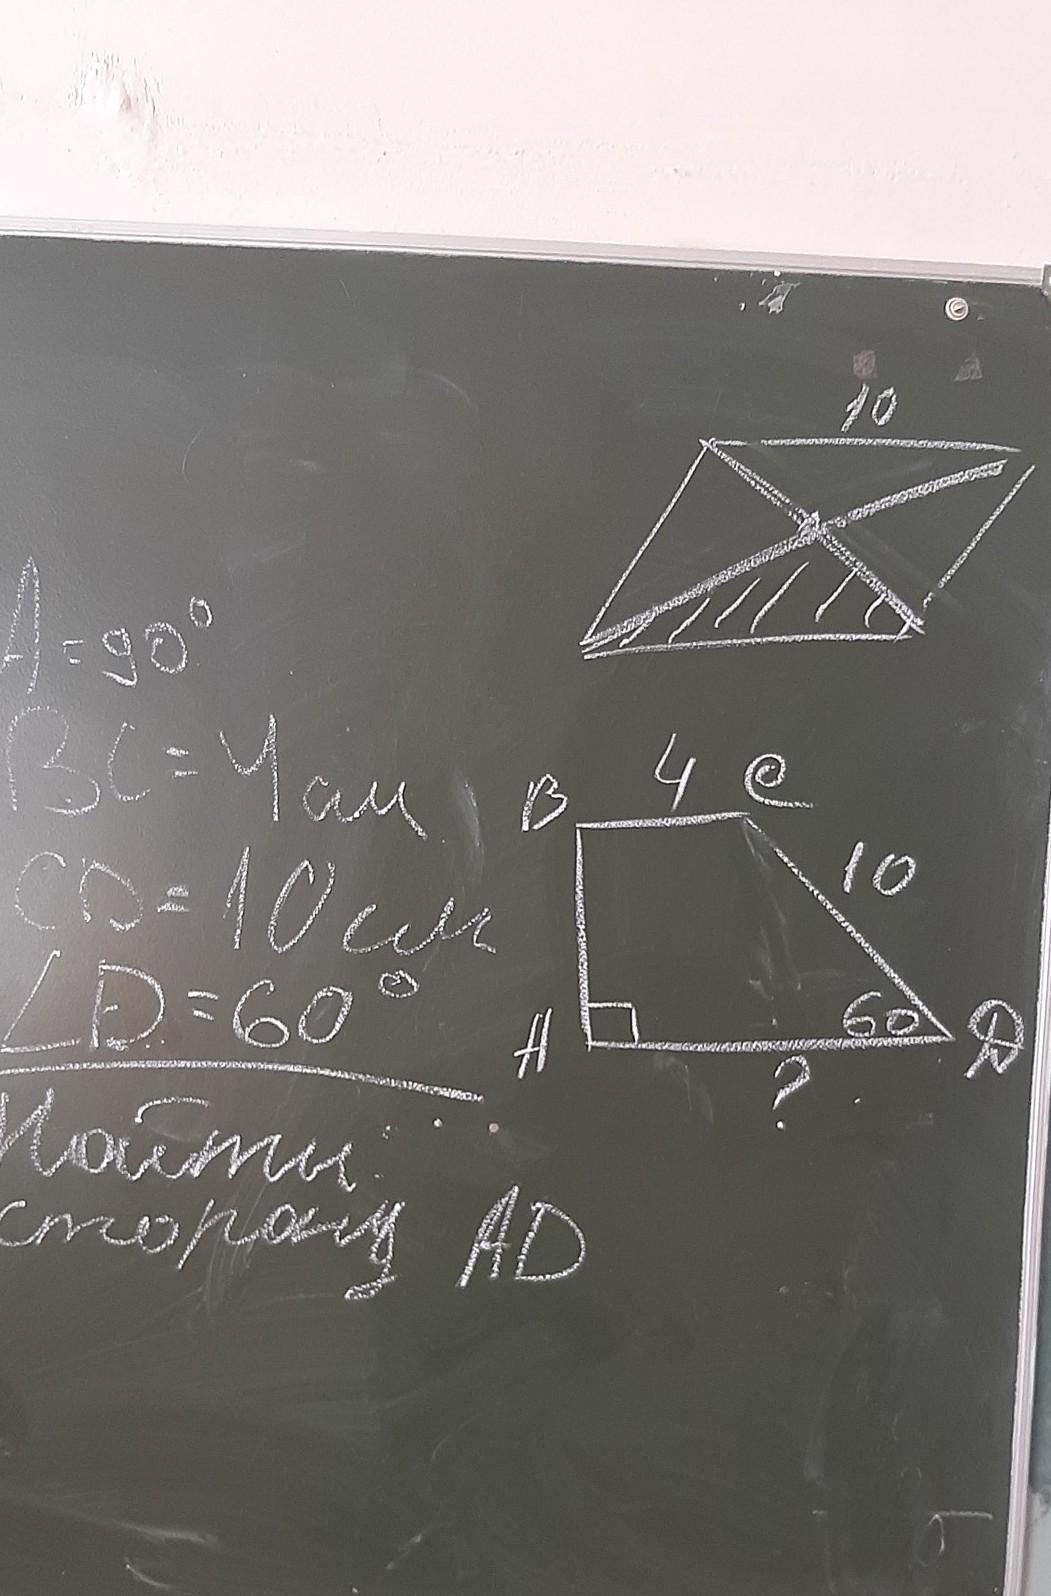 10
A=90°
BC=4см
CD=10см
∠D=60°
Найти
сторону AD
B 4 C
10
A 60 D
?